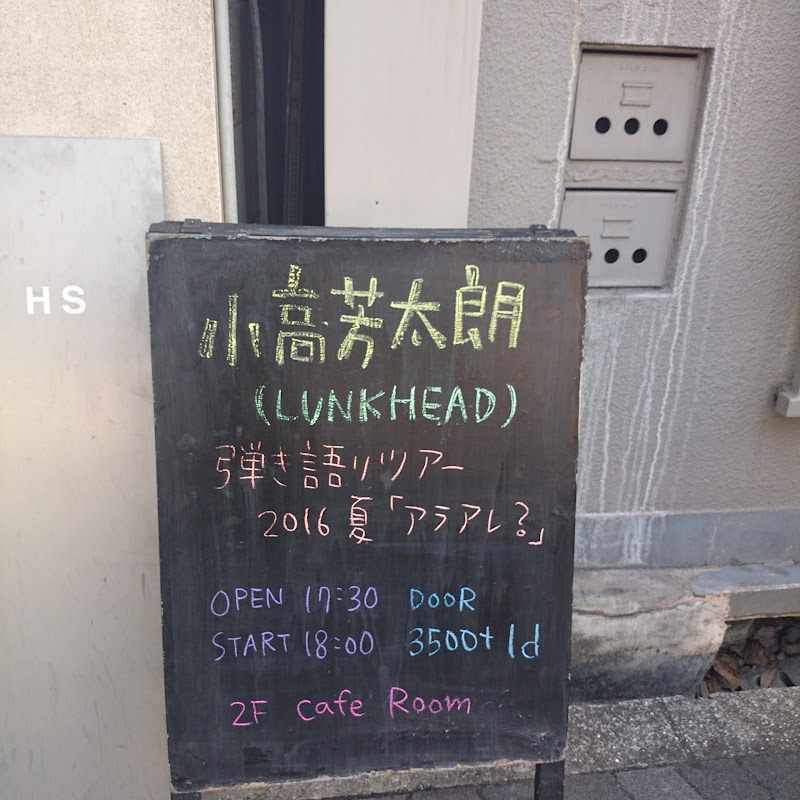 HS
小高芳太朗
(LUNKHEAD)
弾き語りツアー
2016夏「アラアレ?」
OPEN 17:30 DOOR
START 18:00 3500+1d
2F cafe Room